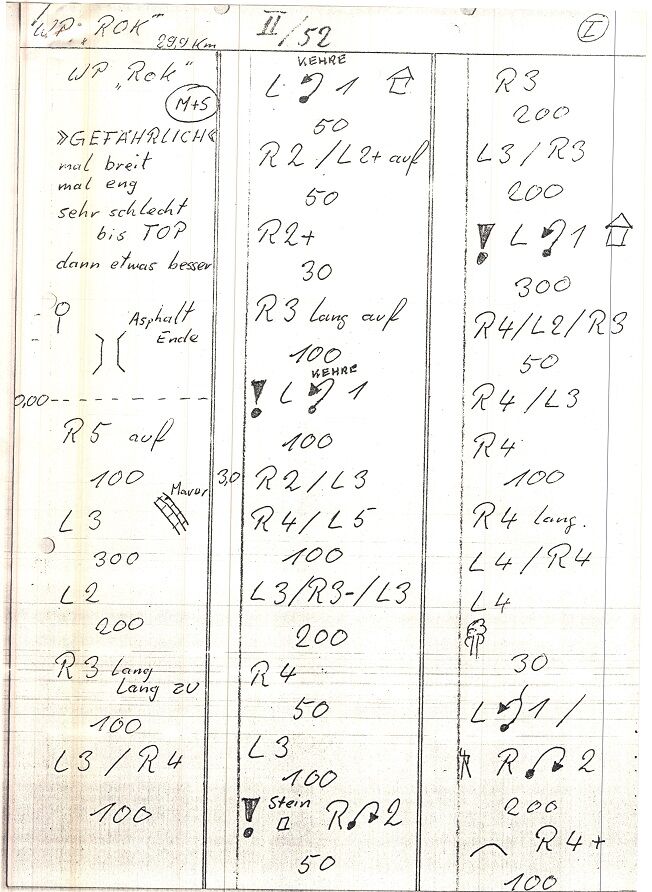 WP. "ROK"
29,9 Km
II/52
I
WP „Rok"
M+S
»GEFÄHRLICH«
mal breit
mal eng
sehr schlecht
bis TOP
dann etwas besser
Asphalt
Ende
0,00
R5 auf
100
Mauer
L3
300
L2
200
R3 lang
lang zu
100
L3 / R4
100
KEHRE
L 1
50
R2 / L2+ auf
50
R2+
30
R3 lang auf
100
KEHRE
! L 1
100
3,0 R2 / L3
R4 / L5
100
L3/R3-/L3
200
R4
50
L3
100
! Stein R 2
50
R3
200
L3 / R3
200
! L 1
300
R4/L2/R3
50
R4 / L3
R4
100
R4 lang.
L4 / R4
L4
30
L 1 /
R 2
200
R4+
100